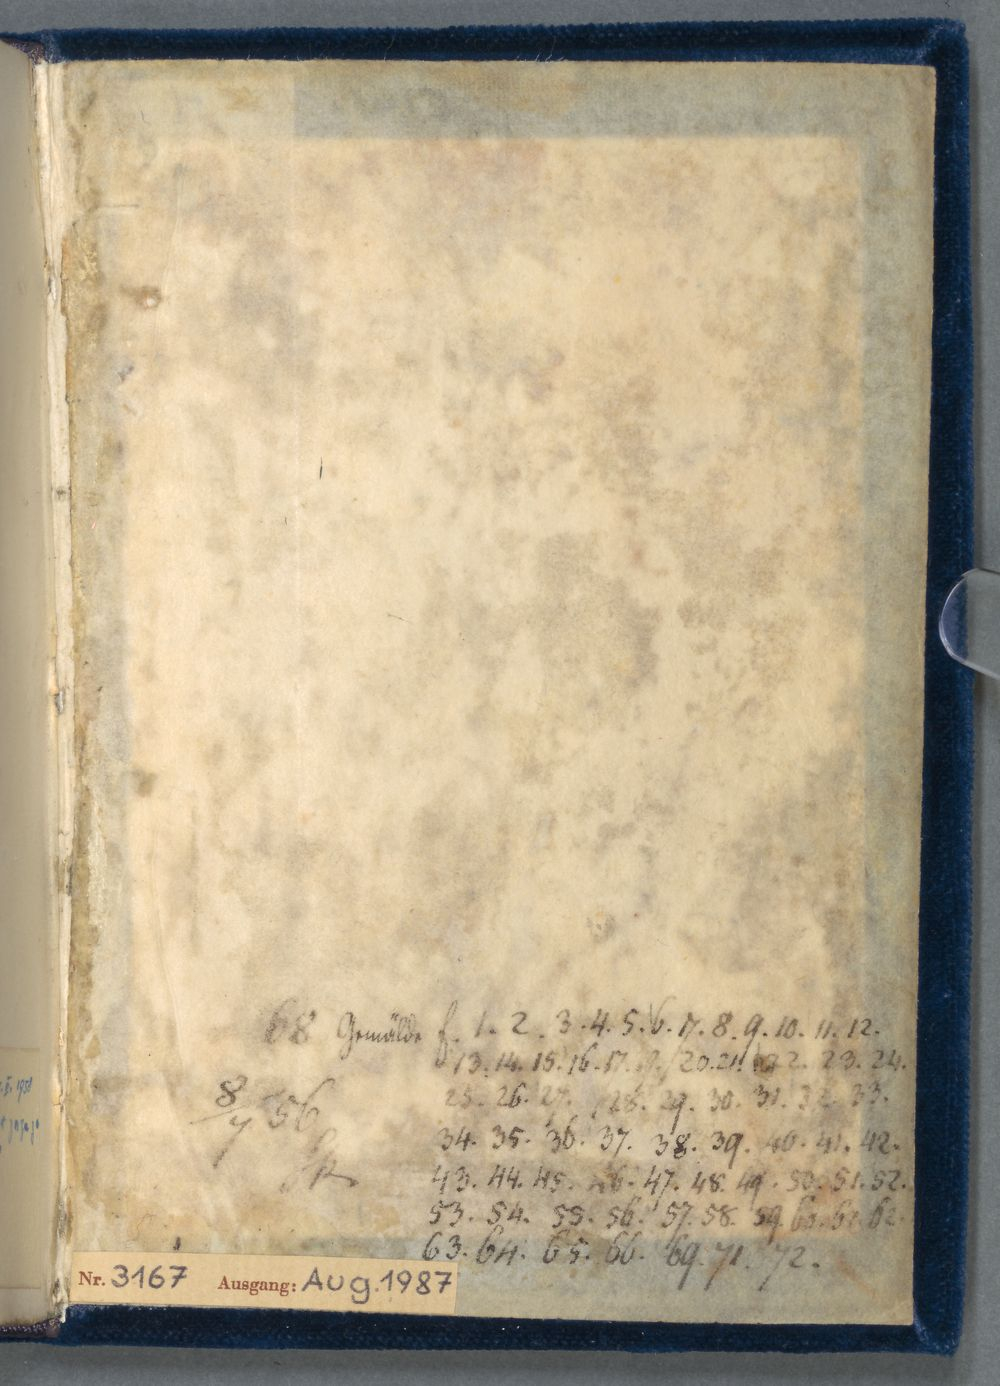 68 Gemälde f. 1. 2. 3. 4. 5. 6. 7. 8. 9. 10. 11. 12.
13. 14. 15. 16. 17. 20. 21. 22. 23. 24.
25. 26. 27. 28. 29. 30. 31. 32. 33.
8/4 56
34. 35. 36. 37. 38. 39. 40. 41. 42.
43. 44. 45. 46. 47. 48. 49. 50. 51. 52.
53. 54. 55. 56. 57. 58. 59. 60. 61. 62.
63. 64. 65. 66. 69. 71. 72.
Nr. 3167 Ausgang: Aug. 1987